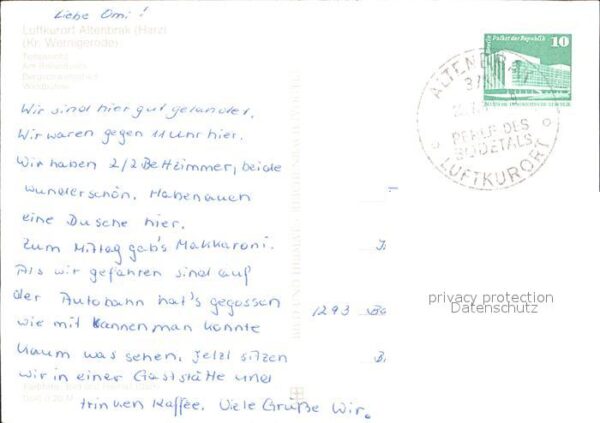 Liebe Omi!
Luftkurort Altenbrak (Harz)
(Kr. Wernigerode)
Wir sind hier gut gelandet.
Wir waren gegen 11 Uhr hier.
Wir haben 2/2 Bettzimmer, beide
wunderschön. Haben auch
eine Dusche hier.
Zum Mittag gab's Makkaroni.
Als wir gefahren sind auf
der Autobahn hat's gegossen
wie mit Kannen, man konnte
kaum was sehen. Jetzt sitzen
wir in einer Gaststätte und
trinken Kaffee. Viele Grüße Wir.
Palast der Republik 10
ALTENBRAK
PERLE DES
BODETALS
LUFTKURORT
1293
privacy protection
Datenschutz